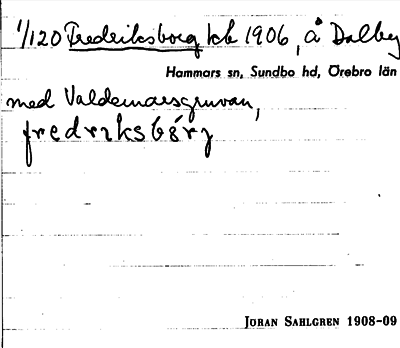 1/120 Fredriksborg kb 1906, å Dalby
Hammars sn, Sundbo hd, Örebro län
med Valdemarsgruvan,
fredrıksbǿrj
JÖRAN SAHLGREN 1908-09